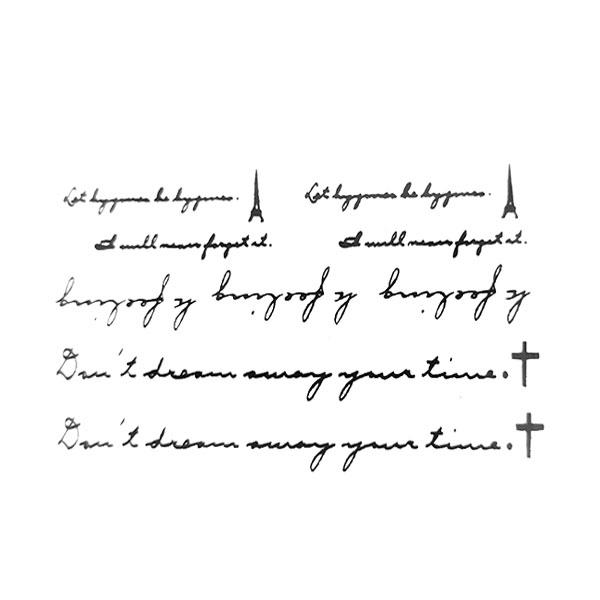 Let bygones be bygones. Let bygones be bygones.
I will never forget it. I will never forget it.
Don't dream away your time.
Don't dream away your time.